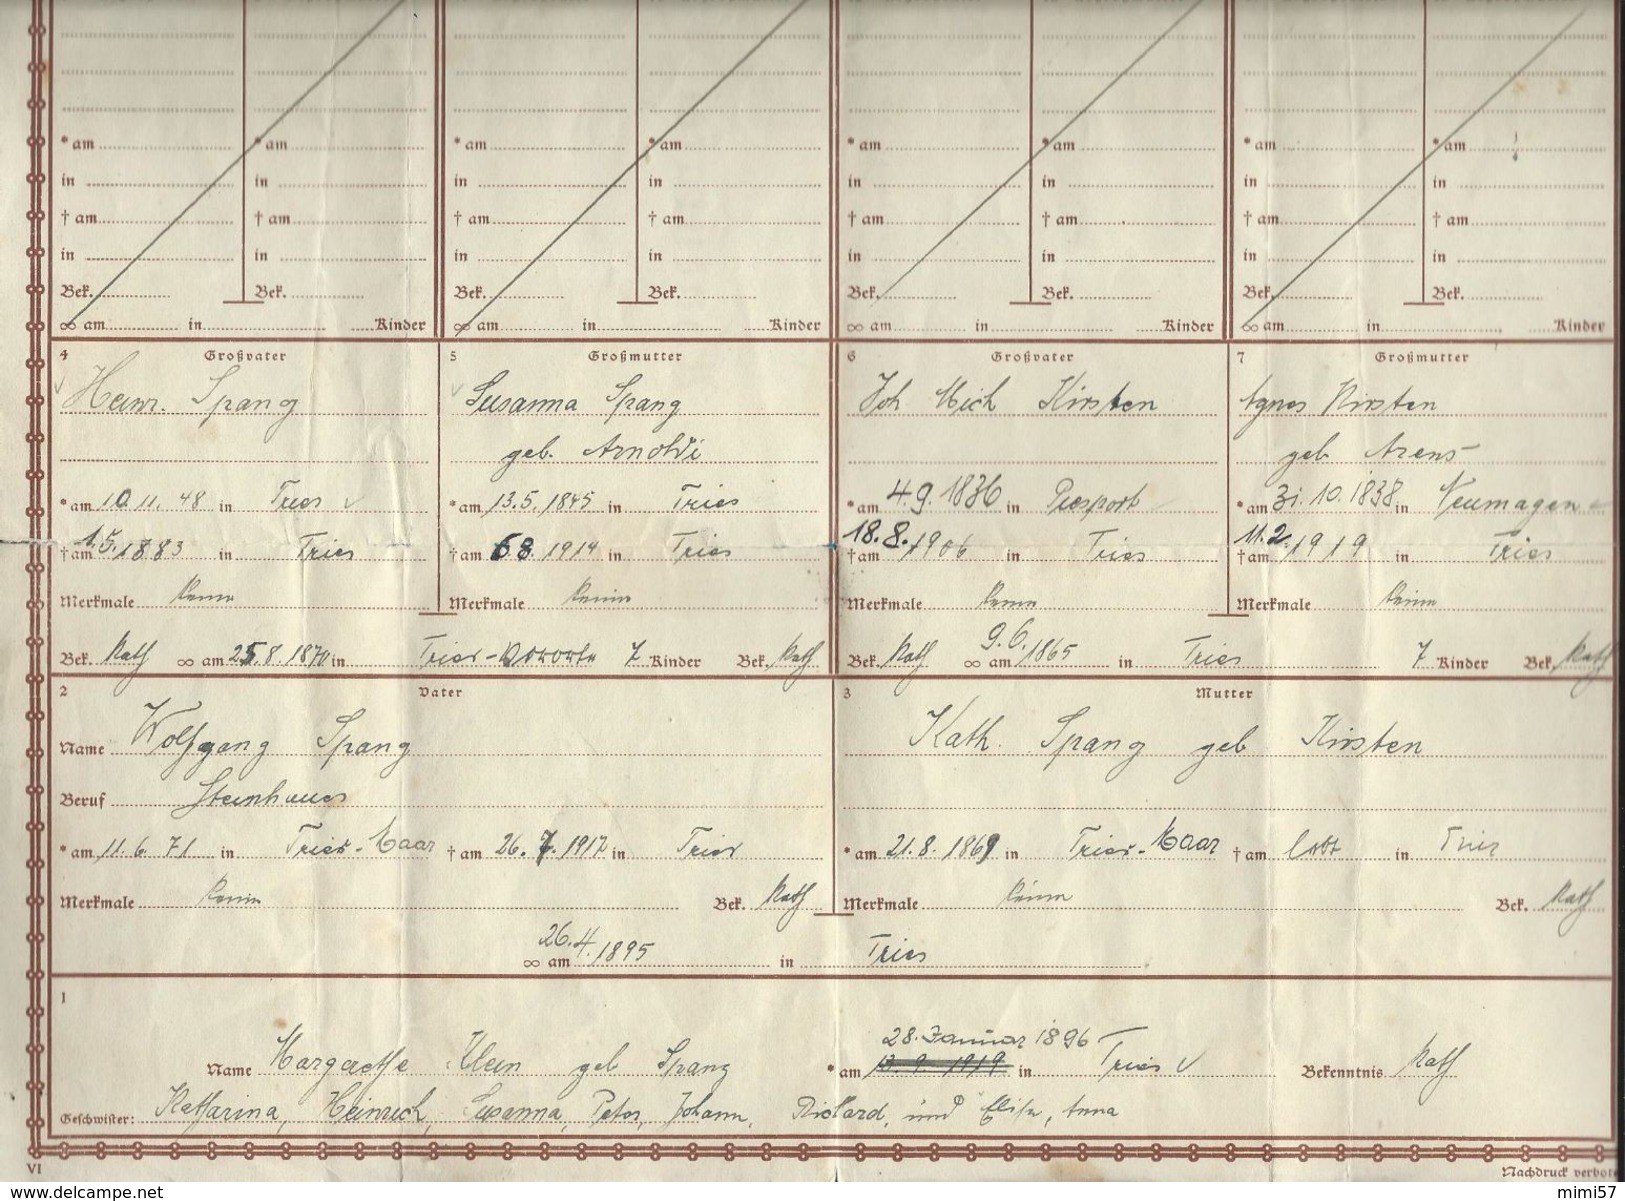 * am * am * am * am * am * am * am * am
in in in in in in in in
† am † am † am † am † am † am † am † am
in in in in in in in in
Bek. Bek. Bek. Bek. Bek. Bek. Bek. Bek.
∞ am in Kinder ∞ am in Kinder ∞ am in Kinder ∞ am in Kinder
4 Großvater
Heinr. Spang
* am 10 11. 48 in Trier
† am 1.5.1883 in Trier
Merkmale
5 Großmutter
Susanna Spang
geb. Arnoldi
* am 13.5.1845 in Trier
† am 6 8. 1914 in Trier
Merkmale
Bek. Kath ∞ am 25.8. 1870 in Trier- 7 Kinder Bek. Kath
6 Großvater
Joh Mich Kirsten
* am 4.9.1836 in Piesport
† am 18.8.1906 in Trier
Merkmale
7 Großmutter
Agnes Kirsten
geb Arens
* am 31.10.1838 in Neumagen
† am 11.2.1919 in Trier
Merkmale
Bek. Kath ∞ am 9.6.1865 in Trier 7 Kinder Bek. Kath
2 Vater
Name Wolfgang Spang
Beruf Steinhauer
* am 11.6. 71 in Trier-Maar † am 26.7.1917 in Trier
Merkmale Bek. Kath
3 Mutter
Kath. Spang geb Kirsten
* am 21.8.1869 in Trier-Maar † am lebt in Trier
Merkmale Bek. Kath
∞ am 26.4.1895 in Trier
1
28. Januar 1896
Name Margarethe Klein geb Spang * am 13.9 1919 in Trier Bekenntnis Kath
Geschwister: Katharina, Heinrich, Susanna, Peter, Johann, Richard, und Elise, Anna
VI
Nachdruck verbot
mimi57
www.delcampe.net